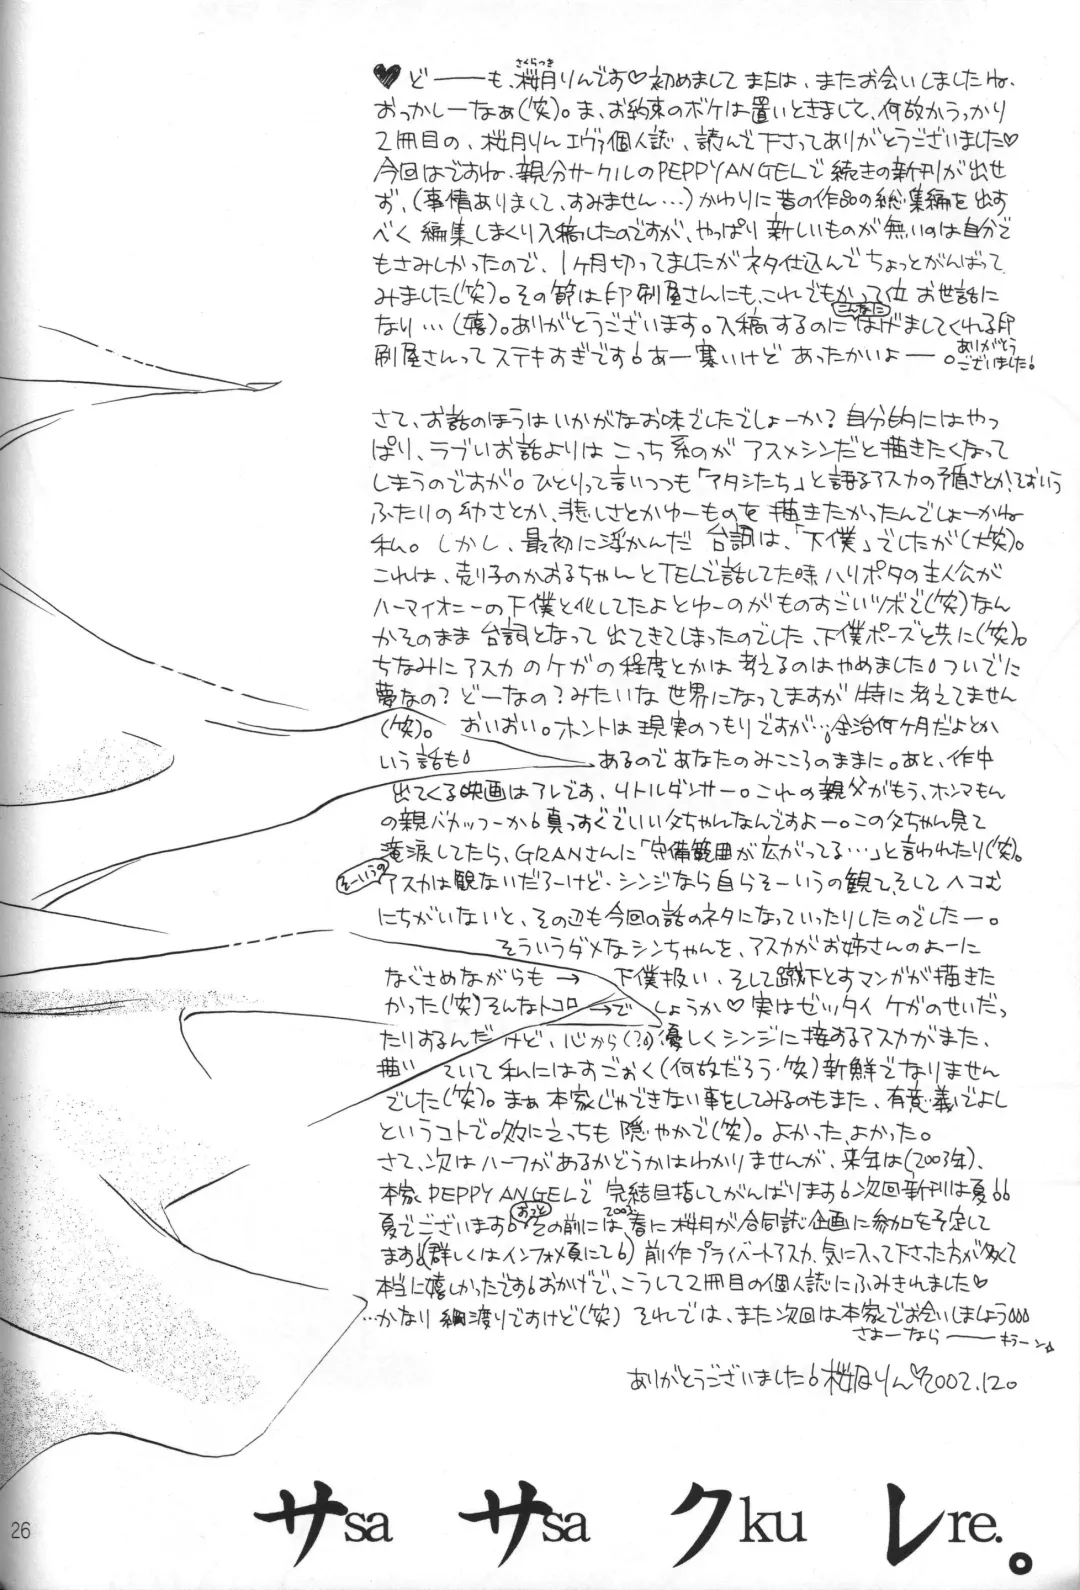 ♥ど──も、桜月りんです♡初めまして または、またお会いしましたね。
さくらつき
おっかしーなぁ(笑)。ま、お約束のボケは置いときまして、何故かうっかり
2冊目の、桜月りんエヴァ個人誌、読んで下さってありがとうございました♡
今回はですね、親分サークルのPEPPY ANGELで続きの新刊が出せ
ず、(事情ありまくて、すみません…)かわりに昔の作品の総集編を出す
べく編集しまくり入稿したのですが、やっぱり新しいものが無いのは自分で
もさみしかったので、1ヶ月切ってましたがネタ仕込んでちょっとがんばって
みました(笑)。その節は印刷屋さんにも、これでもかって位お世話に
なり…(嬉)。ありがとうございます。入稿するのにこんなにはげましてくれる印
刷屋さんってステキすぎです!あー寒いけどあったかいよー。ありがとうございました!
さて、お話のほうはいかがなお味でしたでしょーか?自分的にはやっ
ぱり、ラブいお話よりはこっち系のがアスメシンだと描きたくなって
しまうのですが。ひとりって言いつつも「アタシたち」と語るアスカの矛盾さとか、そおいう
ふたりの幼さとか、悲しさとかゆーものを描きたかったんでしょーかね
私。しかし、最初に浮かんだ台詞は、「下僕」でしたが(大笑)。
これは、売り子のかおるちゃんとTELで話してた時ハリポタの主人公が
ハーマイオニーの下僕と化してたよとゆーのがものすごいツボで(笑)なん
かそのまま台詞となって出てきてしまったのでした、下僕ポーズと共に(笑)。
ちなみにアスカのケガの程度とかは考えるのはやめました!ついでに
夢なの?どーなの?みたいな世界になってますが特に考えてません
(笑)。おいおい。ホントは現実のつもりですが…!全治何ヶ月だよとか
いう話も!あるのであなたのみこころのままに。あと、作中
出てくる映画はアレです、リトルダンサー。これの親父がもう、ホンマもん
の親バカッつーか!真っすぐでいい父ちゃんなんですよー。この父ちゃん見て
滝涙してたら、GRANさんに「守備範囲が広がってる…」と言われたり(笑)。
そーいうのアスカは観ないだろーけど・シンジなら自らそーいうの観て、そしてヘコむ
にちがいないと、その辺も今回の話のネタになっていったりしたのでしたー。
そういうダメなシンちゃんを、アスカがお姉さんのよーに
なぐさめながらも→下僕扱い、そして蹴下とすマンガが描きた
かった(笑)そんなトコロ→でしょうか♡実はゼッタイケガのせいだっ
たりおるんだけど、心から(?!)優しくシンジに接するアスカがまた、
描いていて私にはすごおく(何故だろう・笑)新鮮でなりません
でした(笑)。まぁ本家じゃできない事をしてみるのもまた、有意義でよし
というコトで。吹々にえっちも隠やかで(笑)。よかった、よかった。
さて、次はハーフがあるかどうかはわかりませんが、来年は(2003年)、
本家PEPPY ANGELで完結目指してがんばります!次回新刊は夏!!
夏でございます!おっとその前には、2003.春に桜月が合同誌企画に参加を予定して
ます!(詳しくはインフォメ頁にて!)前作プライベートアスカ、気に入って下さった方が多くて
本当に嬉しかったです!おかげで、こうして2冊目の個人誌にふみきれました♡
…かなり綱渡りですけど(笑)それでは、また次回は本家でお会いしましょう!!!
さよーなら───キラーン☆
ありがとうございました!桜月りん♡2002.12。
サsa サsa クku レre.。
26